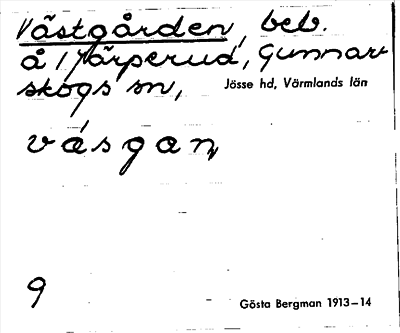 Västgården, beb.
å 1/7 Härperud, Gunnar-
skogs sn, Jösse hd, Värmlands län
väsgan
9
Gösta Bergman 1913-14